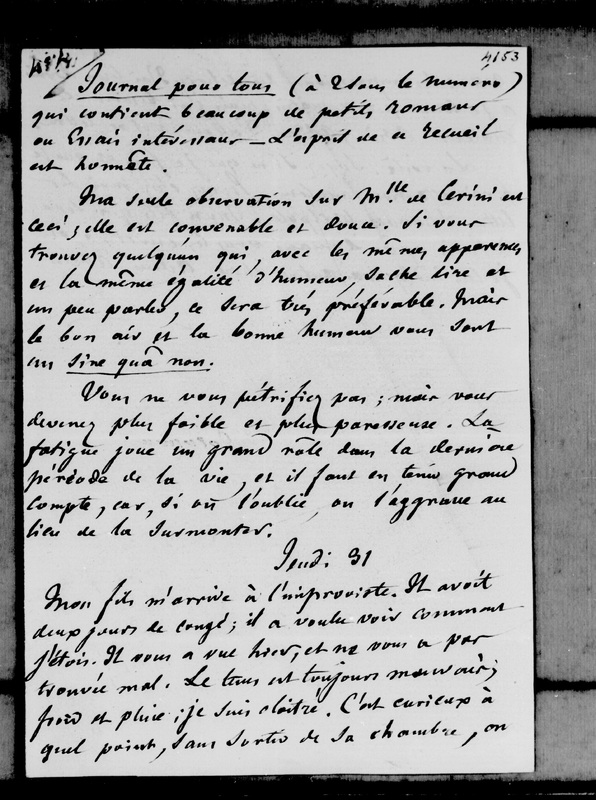 4153
Journal pour tous (à 2 sous le numero)
qui contient beaucoup de petits romans
ou Essais intéressans _ L'esprit de ce recueil
est honnête.
Ma seule observation sur Mlle de Cerini est
ceci ; elle est convenable et douce. Si vous
trouvez quelqu'un qui, avec les mêmes apparences
et la même égalité d'humeur, sache lire et
un peu parler, ce sera très préférable. Mais
le bon air et la bonne humeur vous sont
un sine quâ non.
Vous ne vous pétrifiez pas ; mais vous
devenez plus faible et plus paresseuse. La
fatigue joue un grand rôle dans la dernière
période de la vie, et il faut en tenir grand
compte, car, si on l'oublie, on l'aggrave au
lieu de la surmonter.
Jeudi 31
Mon fils m'arrive à l'improviste. Il avoit
deux jours de congé ; il a voulu voir comment
j'étois. Il vous a vue hier, et ne vous a pas
trouvée mal. Le tems est toujours mauvais ;
froid et pluie ; je suis cloîtré. C'est curieux à
quel point, sans sortir de sa chambre, on